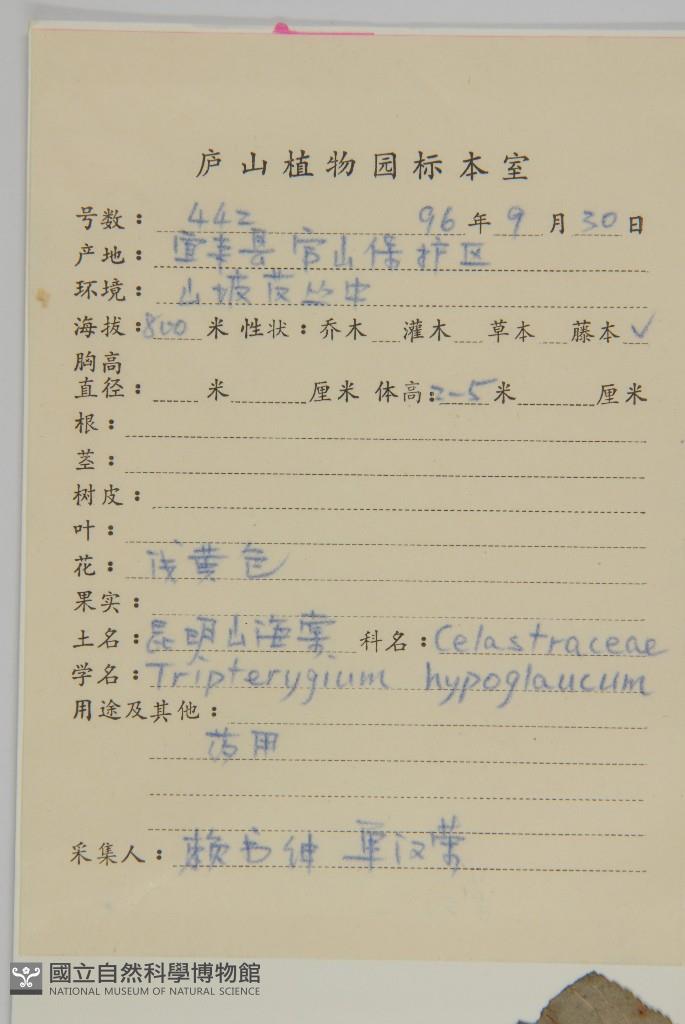 庐山植物园标本室
号数：442 96年9月30日
产地：宜丰县官山保护区
环境：山坡 丛中
海拔：800米 性状：乔木 灌木 草本 藤本 ✓
胸高
直径： 米 厘米 体高：2-5米 厘米
根：
茎：
树皮：
叶：
花：浅黄色
果实：
土名：昆明山海棠 科名：Celastraceae
学名：Tripterygium hypoglaucum
用途及其他：
药用
采集人：赖书绅 单汉荣
國立自然科學博物館
NATIONAL MUSEUM OF NATURAL SCIENCE